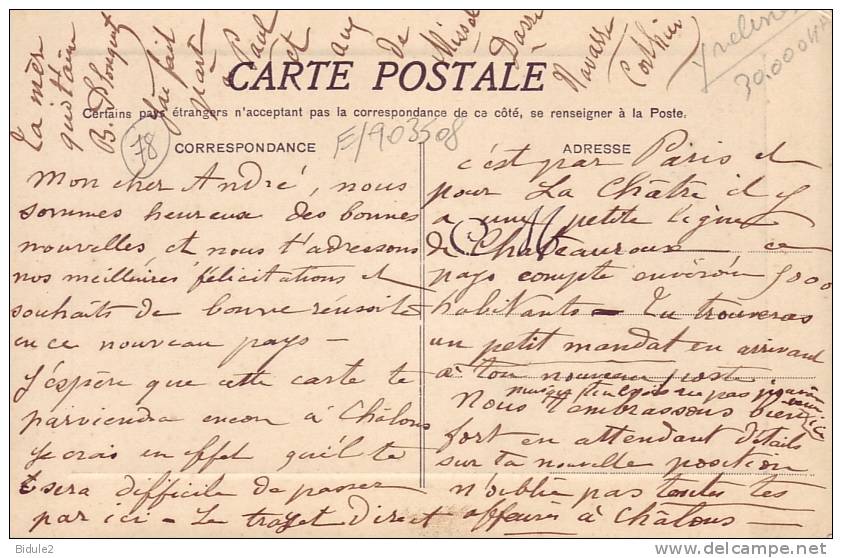 CARTE POSTALE
Certains pays étrangers n'acceptant pas la correspondance de ce côté, se renseigner à la Poste.
CORRESPONDANCE
ADRESSE
78
E/903508
30.000
Mon cher André, nous
sommes heureux des bonnes
nouvelles et nous t'adressons
nos meilleures félicitations et
souhaits de bonne réussite
en ce nouveau pays —
J'espère que cette carte te
parviendra encore à Châlons
je crois en effet qu'il te
sera difficile de passer
par ici — Le trajet direct
c'est par Paris et
pour La Châtre il y
a une petite ligne
de Chateauroux ce
pays compte environ 5000
habitants — Tu trouveras
un petit mandat en arrivant
à ton nouveau poste
Nous t'embrassons bien
fort en attendant détails
sur ta nouvelle position
n'oublie pas toutes tes
affaires à Châlons —
Ta mère
B. Plouquet
fait
part
à Paul
et
au
de
Navarre
Bidule2
delcampe.net